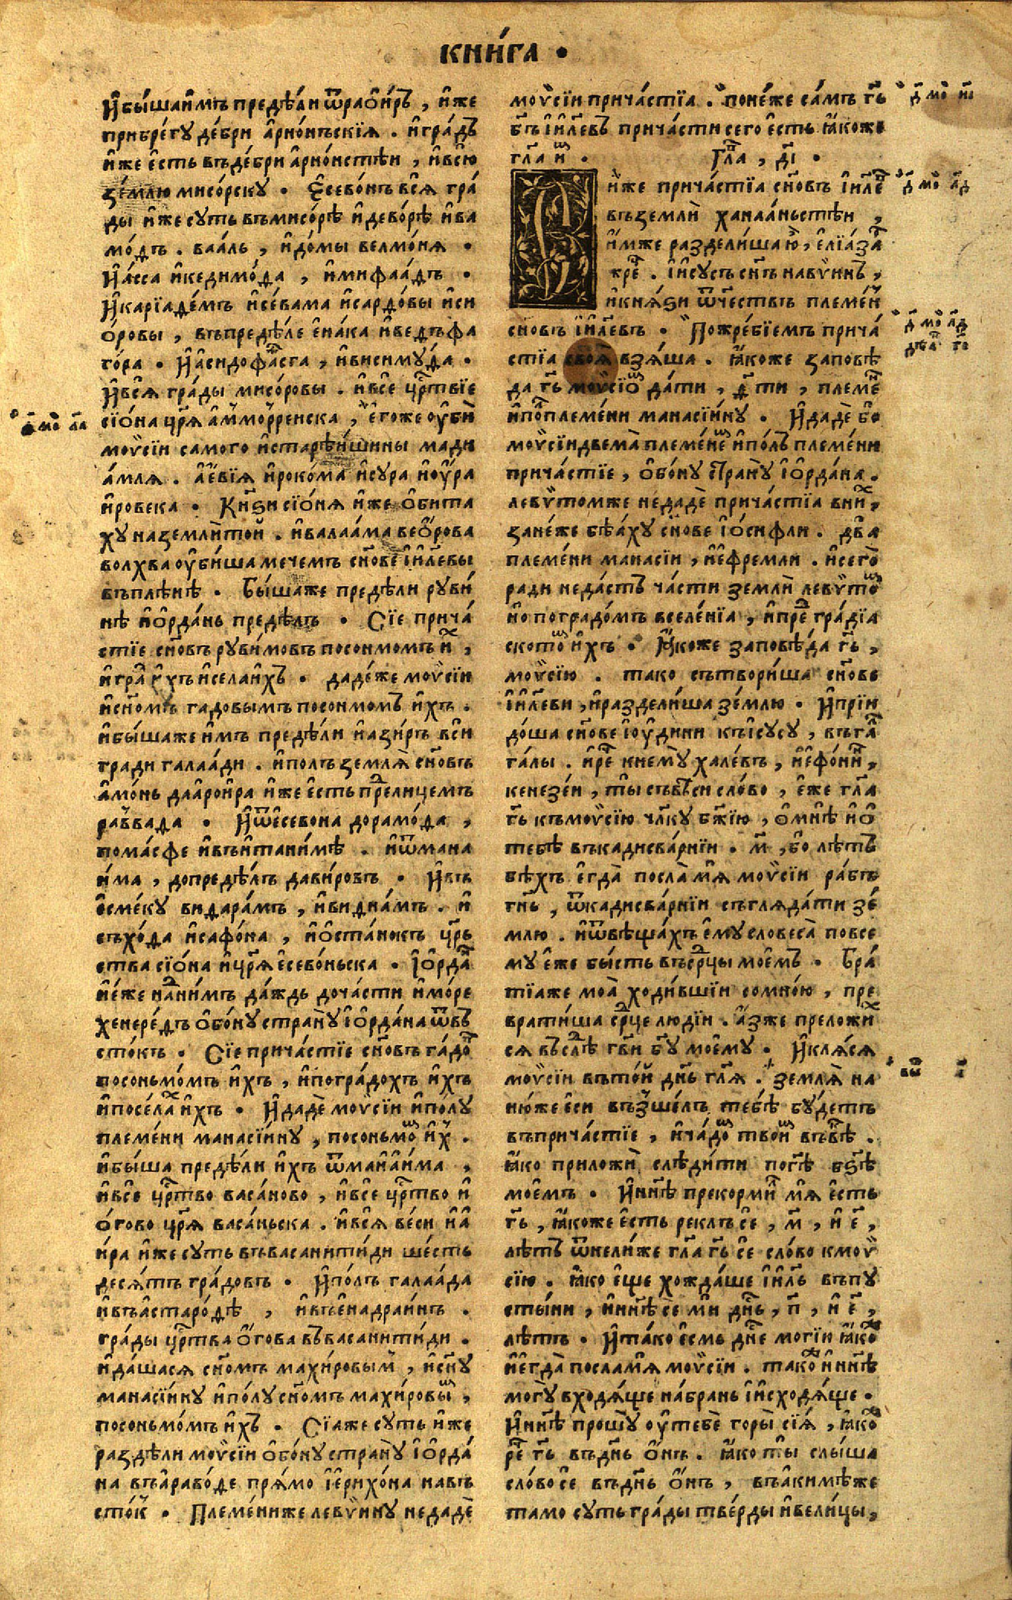 кни́га ·
И҆бы́шаи҆мъ преде́ли ѿраѡи́ръ , и҆же
прибрегу де́бри а҆рно́ньскїѧ . и҆гра́дъ
и҆же є҆сть въде́бри а҆рно́нстѣи , и҆всю̀
зе́млю мисо́рскꙋ . Є҆севѡ́нъ всѧ̀ гра́
ды и҆же сꙋть въмисо́рѣ и҆дево́рѣ и҆ва
мо́дъ . ваа́ль , и҆до́мы велмѡ́нѧ .
И҆а́сса и҆кедимо́да , и҆мифаа́дъ .
И҆карїаде́мъ и҆се́вама и҆сардо́вы и҆си
о҆ровы , въпреде́ле е҆на́ка и҆веделъфа
го́ра . И҆а҆сидофа́сга , и҆висимꙋ́да .
И҆всѧ̀ гра́ды мисо́ровы . и҆всѐ црⷭ҇твїе
сїѡ́на црѧ̀ а҆мморре́нска , е҆гоже ᲂу҆бѝ
моѷсїи самого и҆старѣ́ишины мади
а́млѧ . а҆е҆вїѧ и҆роко́ма и҆сꙋ́ра и҆ᲂу҆́ра
и҆ровека . Кнѧ҃ѕи сїо́нѧ и҆же ѡ҆бита
хꙋ наземлѝ то́й . и҆валаа́ма вео҆́рова
волхва ᲂу҆би́ша мечемъ сн҃ове і҆и҃левы
въплѣ́нѣ . Бы́шаже преде́ли рꙋви́
нѣ и҆ѻ҆рда́нь преде́лъ . Сїе прича́
стїе сн҃овъ рꙋви́мовъ посонмомъ и҆́х ,
и҆гра́ды и҆хъ и҆села и҆́хъ . даде́же моѷсїи
и҆сн҃омъ гадовымъ посонмомъ и҆́хъ .
И҆бы́шаже и҆мъ преде́ли и҆ази́ръ вси
гради галаа́ди . и҆полъ землѧ̀ сн҃овъ
а҆мо́нь даа҆рои҆ра и҆же є҆сть прелицемъ
ра́ввада . И҆ѿе҆севона дорамо́да ,
пома́сфе и҆въи҆тани́мѣ . и҆ѿмана
и҆́ма , допреде́лъ дави́ровъ . И҆въ
ѻ҆смекꙋ видара́мъ , и҆видна́мъ . и҆
съхѡ́да и҆сафо́на , и҆ѻ҆ста́нокъ црⷭ҇
ства сїо́на и҆црѧ̀ е҆сево́ньска . І҆ѻ҆рда́
не́же на́ни́мъ да́ждь дочасти и҆мо́ре
хенере́дъ ѻ҆бо́нꙋ странꙋ і҆ѻ҆рда́на ѿвъ
сто́къ . Сїе причастїе сн҃овъ га́дѡ
посоньмѡ́мъ и҆́хъ , и҆поградохъ и҆́хъ
и҆посе́лахъ и҆́хъ . И҆дадѐ моѷсїи и҆полꙋ
племени манасїи́нꙋ , посоньмо́ и҆́х .
и҆бы́ша преде́ли и҆́хъ ѿмаи҆а́има ,
и҆всѐ црⷭ҇тво васа́ново , и҆всѐ црⷭ҇тво и҆
о҆гово црѧ̀ васа́ньска . и҆всѧ̀ ве́си и҆а҆
и҆́ра и҆же сꙋть въвасанити́ди ше́сть
десѧ́тъ гра́довъ . И҆по́лъ галаа́да
и҆въа҆старо́дѣ , и҆въе҆надраи́нъ .
гра́ды црⷭ҇тва ѻ҆́гова въвасанити́ди .
и҆да́шасѧ сн҃омъ махи́ровым , и҆сн҃ꙋ
манасїи́нꙋ и҆по́лꙋ сн҃омъ махи́ровы ,
посоньмо́мъ и҆́хъ . Сїѧже сꙋть и҆же
раздели моѷсїи ѻ҆бо́нꙋ странꙋ і҆ѻ҆рда́
на въа҆раво́де прѧ́мо і҆ерихо́на навъ
сто́к . Племени́же левѵи́нꙋ недадѐ
моѷсїи прича́стїѧ . поне́же са́мъ гь҃
бг҃ъ і҆и҃левъ причасти сего є҆сть ꙗ҆́коже
гл҃а и҆̀ . Гла , д҃і .
и҆́же причѧ́стїа сн҃овъ і҆и҃ле
въземлѝ ханаа́ньстѣи ,
и҆́мже разделиша и҆̀ , е҆лїа́за
жре . І҆исꙋ́съ сн҃ъ навѵинъ ,
и҆кнѧ́ѕи ѿче́ствъ племе́н
сно́въ і҆и҃левъ . Пожре́бїемъ прича́
стїа своѧ̀ взѧ́ша . ꙗ҆́коже заповѣ
да гь҃ моѷсїо́ да́ти , д҃ ти , племе́
и҆пол племе́ни манасїи́нꙋ . И҆дадѐ бо
моѷсїи двема̀ племе́не и҆по́лъ племени
прича́стїе , ѻ҆бо́нꙋ странꙋ і҆ѻ҆рда́на .
левѵ́томже недадѐ прича́стїа вни ,
зане́же бѣѧ́хꙋ сн҃ове і҆о́сифли . два
племени манасїи , и҆е҆фремли . и҆сего̀
ради недастъ части землѝ левѵ́то
но поградо́мъ вселе́нїа , и҆пре́ гра́дїа
скотѡ́ и҆́хъ . Ꙗ҆́коже заповѣ́да гь҃ ,
моѷсїю . тако сътвори́ша сн҃ове
і҆и҃леви , и҆разделиша зе́млю . И҆прїи
до́ша сн҃ове і҆ю҆дини къі҆сꙋсꙋ , въга
га́лы . и҆ре кнемꙋ̀ хале́въ , и҆ефо́нин ,
кенезе́и , ты съвѣси сло́во , е҆же гла
гь҃ къмоѷсїю чл҃кꙋ бж҃їю , ѻ҆мнѣ и҆ѻ҆
тебѣ въкадисварнїи . м҃ , бо лѣтъ
бѣхъ е҆гда̀ посла̀ мѧ моѷсїи ра́бъ
гн҃ь , ѿкадисва́рнїи съглѧда́ти зе́
млю . и҆ѿвѣща́хъ е҆мꙋ словеса̀ повсе
мꙋ е҆же бы́сть въсрⷣцы мое́мъ . Бра́
тїаже моѧ̀ ходи́вшїи сомно́ю , пре
врати́ша срⷣце люді́и . А҆́зже преложи
сѧ въслѣ гви бг҃ꙋ мое́мꙋ . И҆клѧ́сѧ
моѷсїи въто́й днь҃ гл҃ѧ . землѧ̀ на
ню́же е҆си въше́лъ тебѣ бꙋ́детъ
въпричастїе , и҆ча́до твои́ въвѣ .
Ꙗ҆́ко приложи слѣди́ти погѣ бзѣ
мое́мъ . И҆нн҃ѣ прекорми мѧ є҆сть
гь҃ , ꙗ҆́коже є҆сть реклъ се , м҃ , и҆ е҃ ,
лѣтъ ѿнели́же гла гь҃ се сло́во кмоѵ
сїю . ꙗ҆́ко е҆ще хожда́ше і҆и҃ль въпꙋ
сты́ни , и҆нн҃ѣ се ми днь҃ , п҃ , и҆ е҃ ,
лѣтъ . И҆тако е҆смь дн҃е могїи ꙗ҆́ко
и҆е҆гда̀ посламѧ моѷсїи . тако и҆нн҃ѣ
могꙋ входѧ́ще на́брань и҆и҆сходѧ́ще .
И҆нн҃ѣ прошꙋ̀ ᲂу҆тебѐ горы̀ сїѧ̀ , ꙗ҆́ко
ре гь҃ въднь҃ ѻ҆́нъ . ꙗ҆́ко ты слы́ша
сло́во се въднь҃ ѻ҆́нъ , въꙗ҆ки́мѣже
тамо сꙋть гра́ды тве́рды и҆вели́цы ,